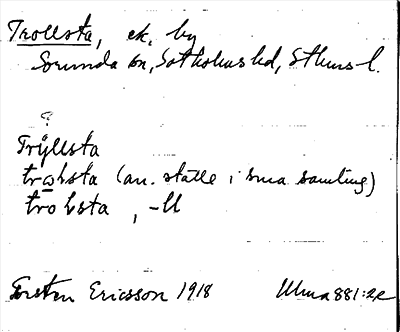 Trollsta, ek, by
Sorunda sn, Sotholms hd, Sthms l.
?
Trÿllsta
trωlsta (an. ställe i sma samling)
trolsta, -ll
Torsten Ericsson 1918 Ulma 881:2c